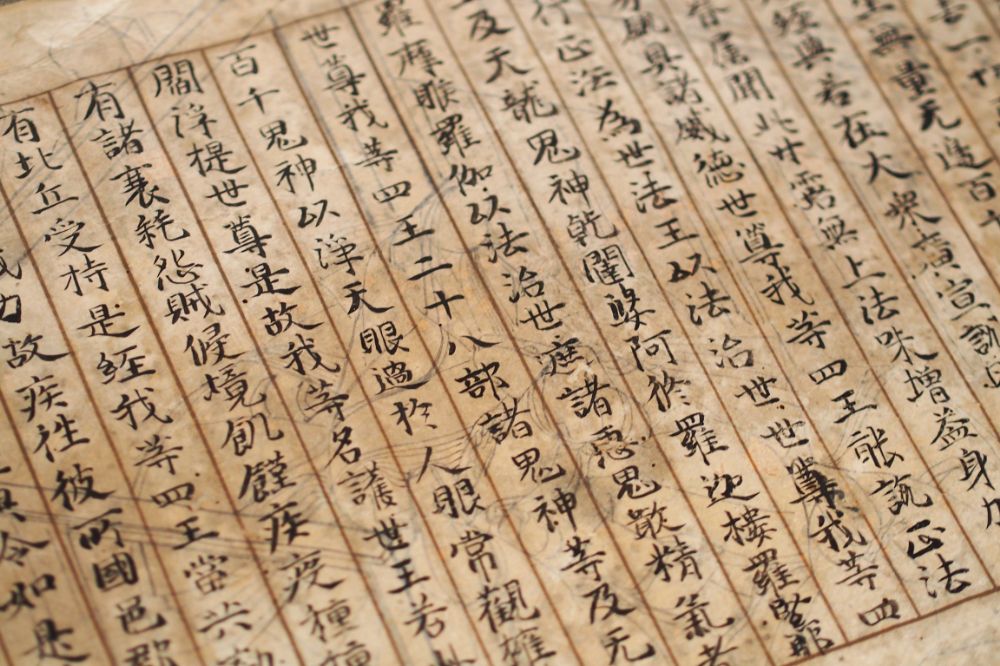 無量无邊百
經典若在大眾廣宣說
屬聞此甘露無上法味增益身力
具諸威德世尊我等四王能說正法
行正法為世法王以法治世世尊我等四
及天龍鬼神乾闥婆阿修羅迦樓羅緊那
羅摩睺羅伽以法治世遮諸惡鬼噉精氣者
世尊我等四王二十八部諸鬼神等及无
百千鬼神以淨天眼過於人眼常觀擁
閻浮提世尊是故我等名護世王若此
有諸衰耗怨賊侵境飢饉疾疫種種
有比丘受持是經我等四王當共勸
威力故疾往彼所國邑郡
令如是